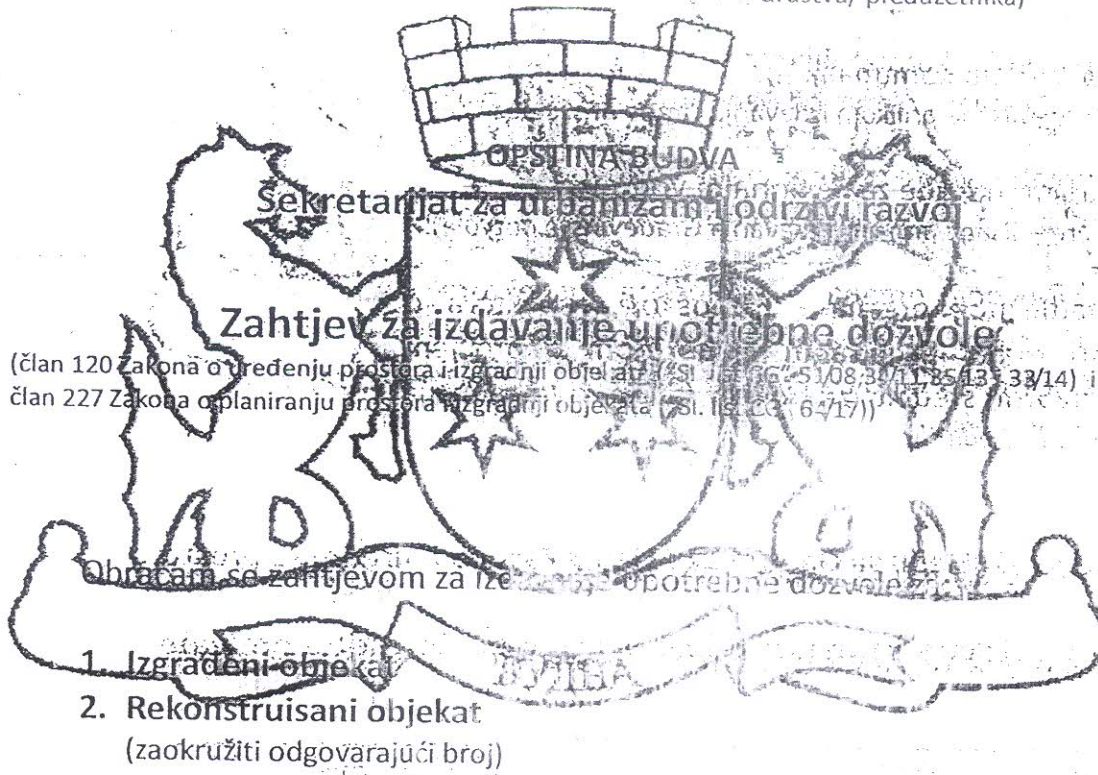 društva/ preduzetnika)
OPŠTINA BUDVA
Sekretarijat za urbanizam i održivi razvoj
Zahtjev za izdavanje upotrebne dozvole
(član 120 Zakona o uređenju prostora i izgradnji objekata ("Sl. list CG" 51/08, 34/11, 35/13, 33/14) i
član 227 Zakona o planiranju prostora i izgradnji objekata ("Sl. list CG" 64/17))
Obraćam se zahtjevom za izdavanje upotrebne dozvole za:
1. Izgrađeni objekat
БУДВА
2. Rekonstruisani objekat
(zaokružiti odgovarajući broj)